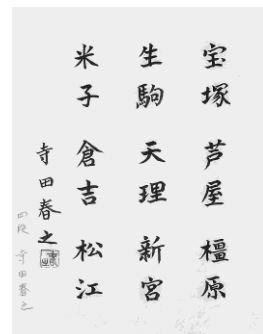 宝塚 芦屋 橿原
生駒 天理 新宮
米子 倉吉 松江
寺田春之
四段 寺田春之